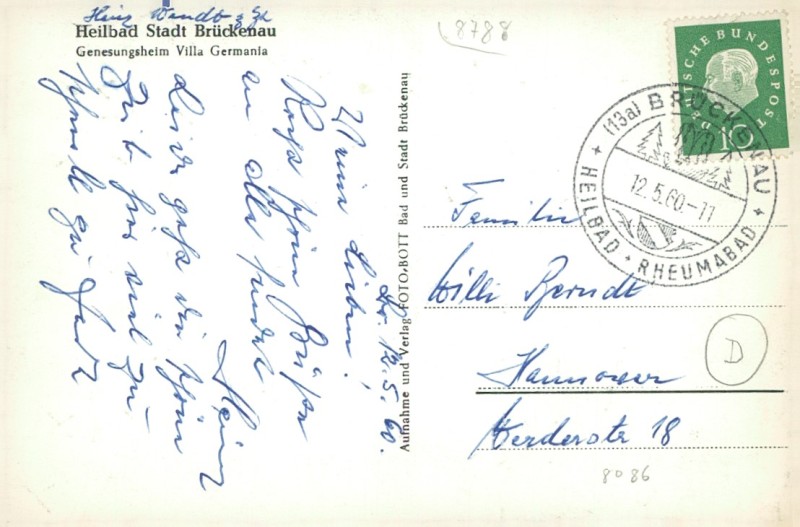 Heinz Wendt z. Zt.
Heilbad Stadt Brückenau
Genesungsheim Villa Germania
Br. 12.5.60.
Meine Lieben!
Recht schöne Grüße
an alle sendet
Heinz
Leider geht die schöne
Zeit hier viel zu
schnell zu Ende
Aufnahme und Verlag FOTO-BOTT Bad und Stadt Brückenau
8788
DEUTSCHE BUNDESPOST
10
(13a) BRÜCKENAU
12.5.60.-11
HEILBAD + RHEUMABAD +
Familie
Willi Berndt
Hannover
Herderstr 18
D
8086